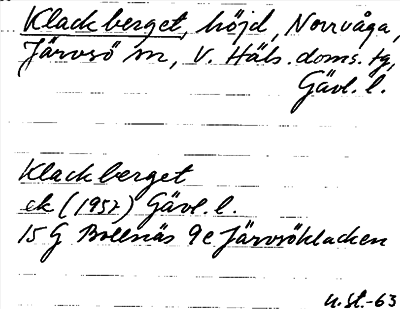 Klackberget, höjd, Norrvåga,
Järvsö sn, V. Häls. doms. tg,
Gävl. l.
Klackberget
ek (1957) Gävl. l.
15 G Bollnäs 9e Järvsöklacken
u.st.-63